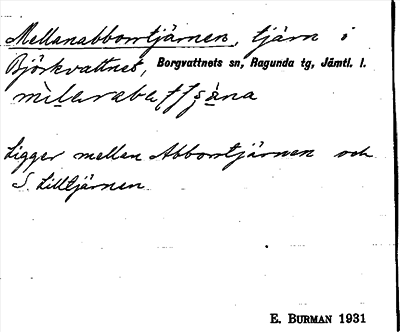 Mellanabborrtjärnen, tjärn i
Björkvattnet, Borgvattnets sn, Ragunda tg, Jämtl. l.
Ligger mellan Abborrtjärnen och
S. Lilltjärnen.
E. BURMAN 1931